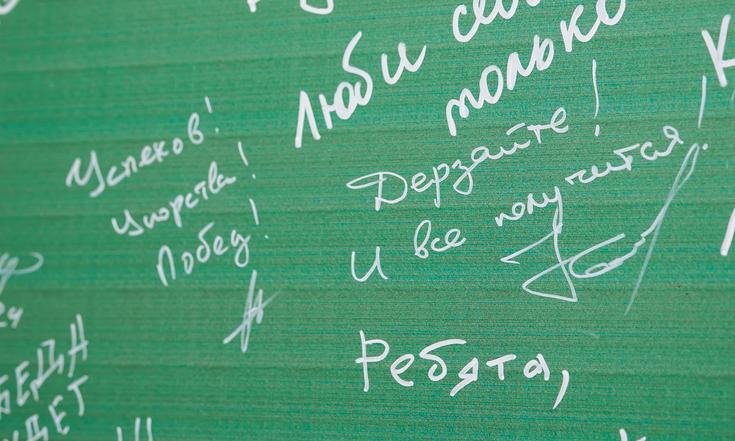 Люби
только
Успехов!
Упорства!
Побед!
Дерзайте!
И все получится!
Ребята,